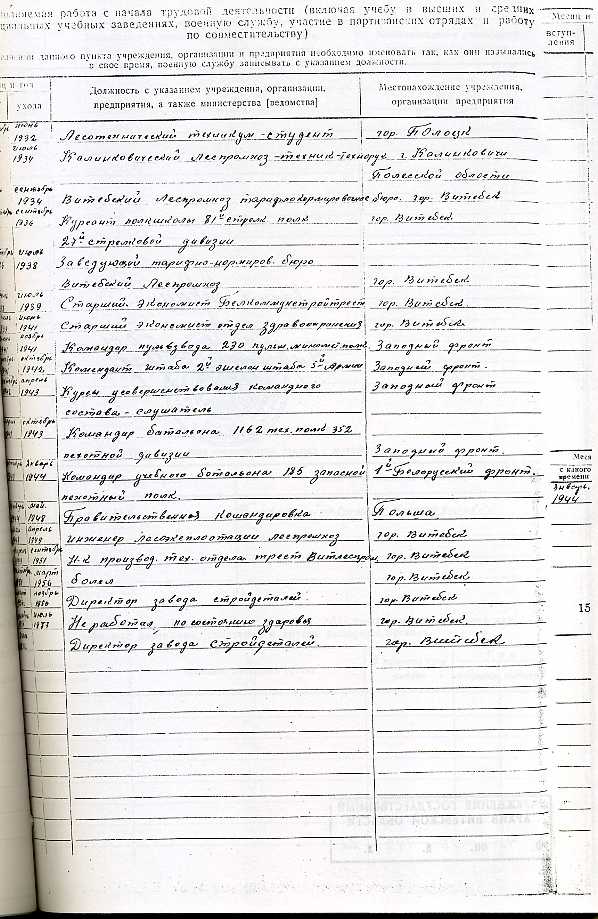 полняемая работа с начала трудовой деятельности (включая учебу в высших и средних
специальных учебных заведениях, военную службу, участие в партизанских отрядах и работу
по совместительству)
данного пункта учреждения, организации и предприятия необходимо именовать так, как они назывались
в свое время, военную службу записывать с указанием должности.
Месяц и
вступ-
ления
и год
ухода
Должность с указанием учреждения, организации,
предприятия, а также министерства [ведомства]
Местонахождение учреждения,
организации предприятия
июнь
1932 Лесотехнический техникум - студент гор. Полоцк
июль
1934 Калинковический Леспромхоз - техник-технорук г. Калинковичи
Полесской области
сентябрь
1934 Витебский Леспромхоз тарифнонормировочное бюро. гор. Витебск
сентябрь
1936 Курсант полкшколы 81й стрелк. полк гор. Витебск
27й стрелковой дивизии
июль
1938 Заведующий тарифно-нормиров. бюро
Витебский Леспромхоз гор. Витебск
июль
1939 Старший экономист Белкоммунстройтрест гор. Витебск.
июнь
1941 Старший экономист отдел здравоохранения гор. Витебск.
ноябрь
1941 Командир пульвзвода 230 пульм. миномет. полк Западный фронт
октябрь
1942 Комендант штаба 2й эшелон штаба 5й Армии Западный фронт.
апрель
1943 Курсы усовершенствования командного Западный фронт
состава - слушатель
октябрь
1943 Командир батальона 1162 тех. полк 352
пехотной дивизии Западный фронт
январь
1944 Командир учебного батальона 185 запасной 1й Белорусский фронт.
пехотной полк.
май
1948 Правительственная командировка Польша
апрель
1949 инженер лесоэксплоатации леспромхоз гор. Витебск
сентябрь
1951 Н-к производ. тех. отдела трест Витлеспром, гор. Витебск
март
1956 болел гор. Витебск
ноябрь
Директор завода стройдеталей гор. Витебск
июль
1973 Не работал, по состоянию здоровья гор. Витебск
Директор завода Стройдеталей. гор. Витебск
Меся
с какого
времени
январь,
1944
15